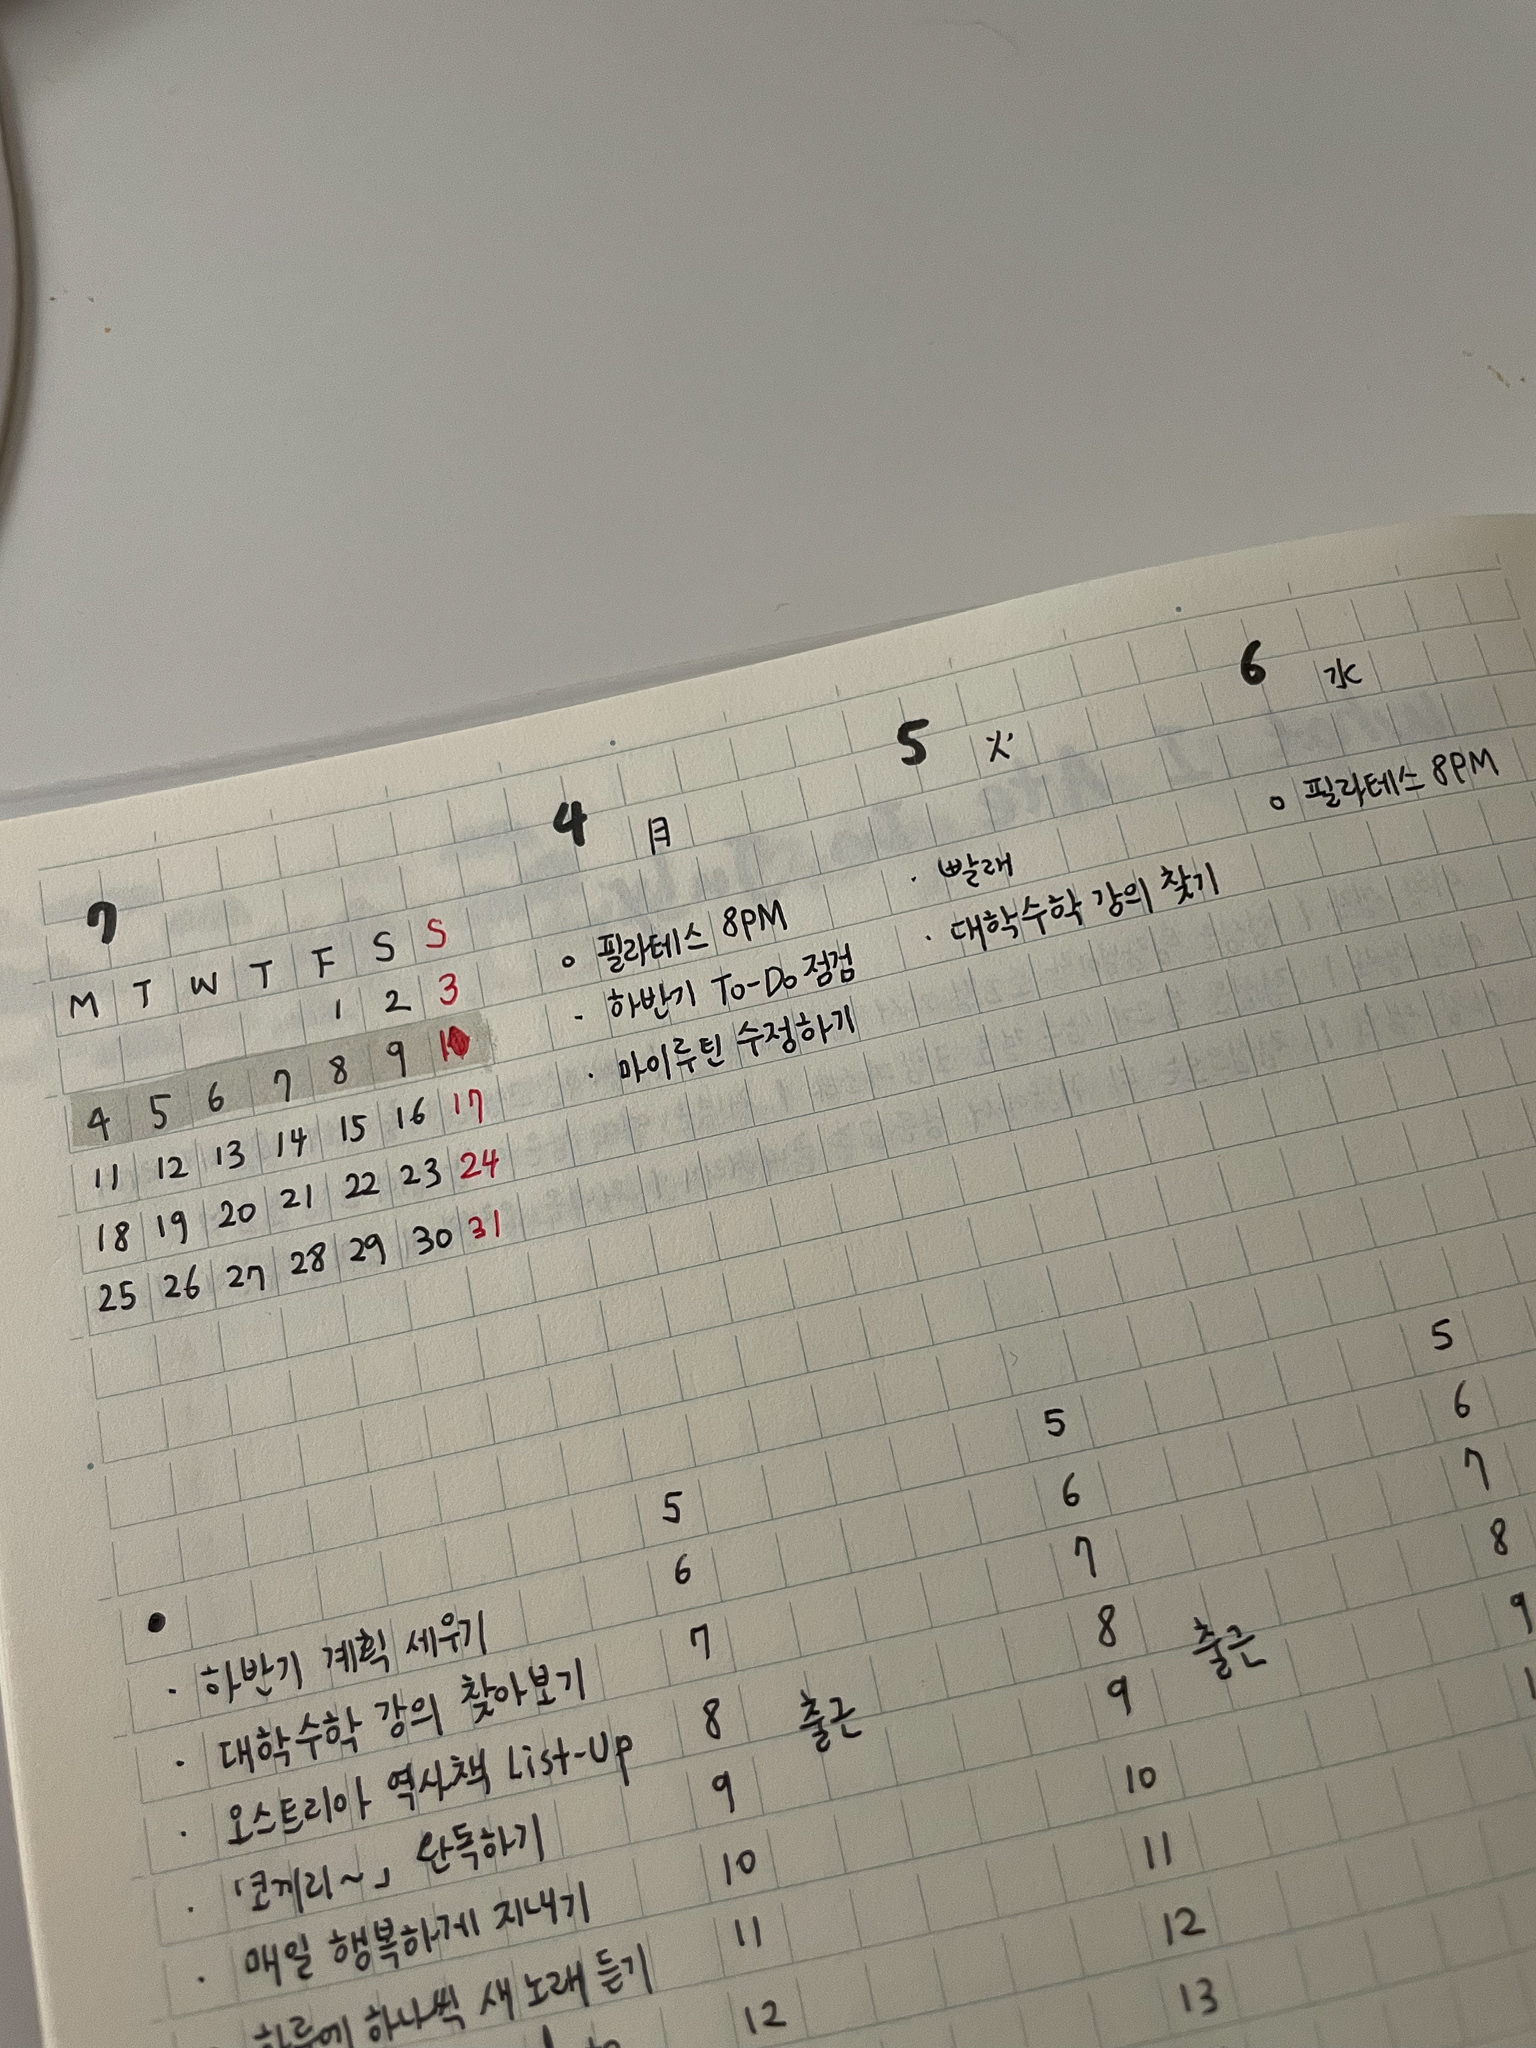 7
M T W T F S S
1 2 3
4 5 6 7 8 9 10
11 12 13 14 15 16 17
18 19 20 21 22 23 24
25 26 27 28 29 30 31
4 月
○ 필라테스 8PM
· 하반기 To-Do 점검
· 마이루틴 수정하기
5 火
· 빨래
· 대학수학 강의 찾기
6 水
○ 필라테스 8PM
●
· 하반기 계획 세우기
· 대학수학 강의 찾아보기
· 오스트리아 역사책 List-Up
· 「코끼리~」 완독하기
· 매일 행복하게 지내기
· 하루에 하나씩 새 노래 듣기
5
6
7
8 출근
9
10
11
12
5
6
7
8 출근
9
10
11
12
13
5
6
7
8
9